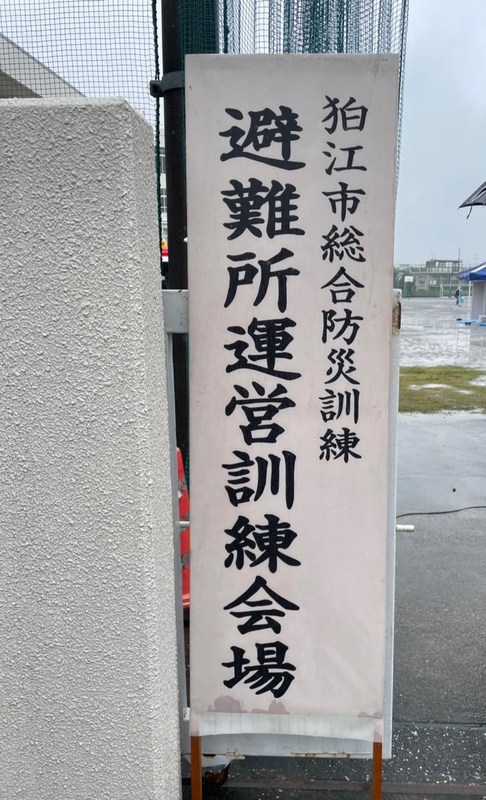 狛江市総合防災訓練
避難所運営訓練会場